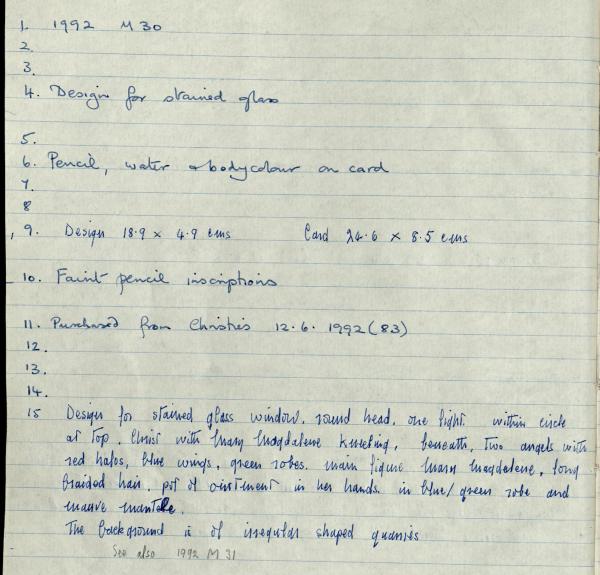 1. 1992 M 30
2.
3.
4. Design for stained glass
5.
6. Pencil, water & bodycolour on card
7.
8
9. Design 18.9 x 4.9 cms Card 24.6 x 8.5 cms
10. Faint pencil inscriptions
11. Purchased from Christies 12.6.1992 (83)
12.
13.
14.
15 Design for stained glass window. round head. one light. within circle
at top. Christ with Mary Magdalene kneeling, beneath, two angels with
red halos, blue wings, green robes. main figure Mary Magdalene, long
braided hair. pot of ointment in her hands. in blue/green robe and
mauve mantle.
The background is of irregular shaped quarries
See also 1992 M 31